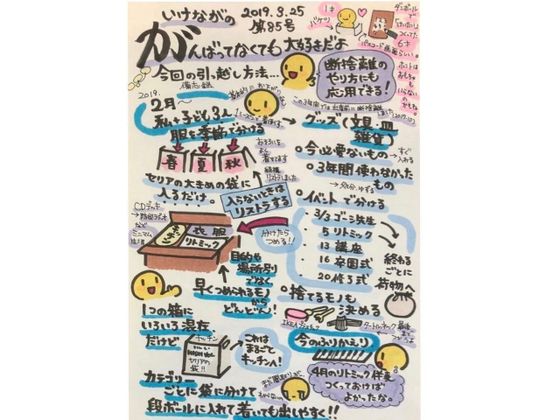 いけながの
2019.3.25
第85号
がんばってなくても大好きだよ
今回の引っ越し方法…
備忘録
断捨離の
やり方にも
応用できる!
2019.
2月〜
私+子ども3人
服を季節で分ける
春 夏 秋
セリアの大きめの袋に
入るだけ。
入らないときは
リストラする
グッズ(文具・皿
雑貨)
今必要ないもの→すぐ
入れる
3年間使わなかった
もの
イベントで分ける
3/3 ゴーシ先生
5 リトミック
13 講座
16 卒園式
20 修了式
終わる
ごとに
荷物へ
CDデッキ
など
衣服
リトミック
分けたら
つめる!!
目的や
場所別
でなく
早くつめられるモノ
から
どんどん!
捨てるモノも
決める
1つの箱に
いろいろ混在
だけど
キッチン
セリアの袋!!
これは
まるごと
キッチン!
今のふりかえり
4月のリトミック伴奏
つくっておけば
よかったな。
カテゴリー
ごとに袋に分けて
段ボールに入れて着いても出しやすく!!